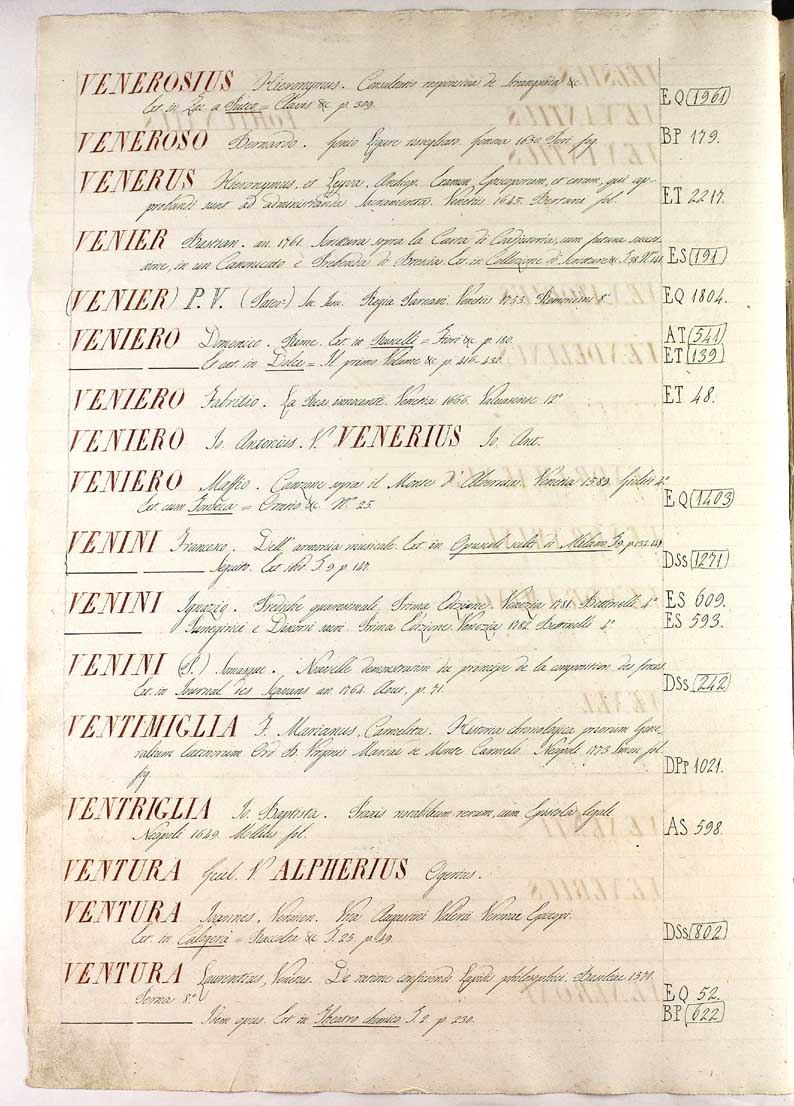 VENEROSIUS Hieronymus. Consultatio responsiva de &c
Ext. in Zac. a = Clavis &c p. 309. EQ 1961
VENEROSO Bernardo. Genio Ligure risvegliato. Genova 1650 fig. BP 179.
VENERUS Hieronymus, et Leyva, Archiep. Examen Episcoporum, et eorum, qui ap-
probandi sunt ad administranda Sacramenta. Venetiis 1645. Bertani fol. ET 2217.
VENIER Bastian. an. 1761. Scrittura sopra la Carta di Coadjutoria, cum futura succes-
sione, in un Canonicato e Prebenda di Brescia. Ext. in Collezione di Scritture &c. T. 38 N° ES 191
(VENIER) P. V. (Pater) Venetiis 8° EQ 1804.
VENIERO Domenico. Rime. Ext. in = Fiori &c p. 180. AT 541
Et ext. in Dolce = Il primo Volume &c p. 416-432. ET 139
VENIERO Fabritio. La innocente. Venetia 1666. Valvasense 12° ET 48.
VENIERO Io. Antonius. V° VENERIUS Io. Ant.
VENIERO Maffio. Canzone sopra il Monte d'Alvernia. Venetia 1589. Gioliti 4°
Ext. cum Fonseca = &c N° 25. EQ 1403
VENINI Francesco. Dell'armonia musicale. Ext. in Opuscoli scelti di Milano T. 9. p. 132. 147
Seguito. Ext. ibid. T. 9. p. 147. DSs 1271
VENINI Ignazio. Prediche quaresimali. Prima Edizione. Venezia 1781. Bettinelli 4° ES 609.
Panegirici e Discorsi sacri. Prima Edizione. Venezia 1782. Bettinelli 4° ES 593.
VENINI (S.) Nouvelle demonstration du principe de la composition des forces.
Ext. in Journal des Sçavans an. 1764. Aout, p. 71. DSs 242
VENTIMIGLIA F. Marianus, Carmelita. Historia chronologica priorum Gene-
ralium latinorum Ord. B. Virginis Mariae de Monte Carmelo. Neapoli 1773. Simon fol.
fig. DPp 1021.
VENTRIGLIA Io. Baptista. Praxis notabilium rerum, cum Epistola legale
Neapoli 1649. fol. AS 598.
VENTURA Guiel. V° ALPHERIUS Ogerius.
VENTURA Ioannes, Veronen. Vita Augustini Valerii Veronae Episcopi.
Ext. in Calogerà = Raccolta &c T. 25. p. 49. DSs 802
VENTURA Laurentius, Venetus. De ratione conficiendi Lapidis philosophici. Basileae 1571.
Perna 8° EQ 52.
Idem opus. Ext. in Theatro chemico T. 2. p. 230. BP 622